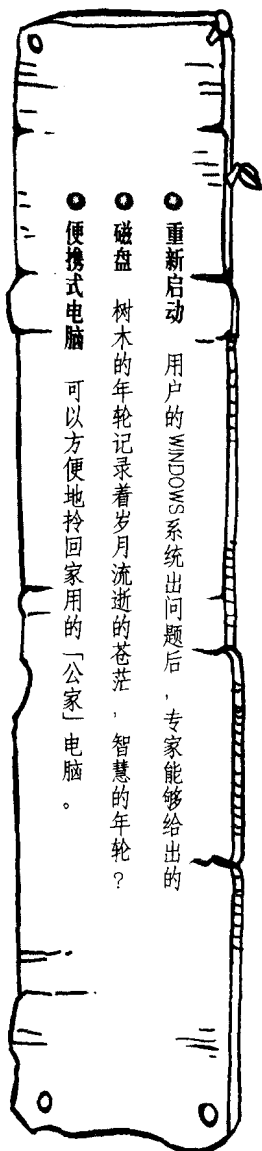 ● 重新启动　用户的WINDOWS系统出问题后，专家能够给出的
● 磁盘　树木的年轮记录着岁月流逝的苍茫，智慧的年轮？
● 便携式电脑　可以方便地拎回家用的「公家」电脑。